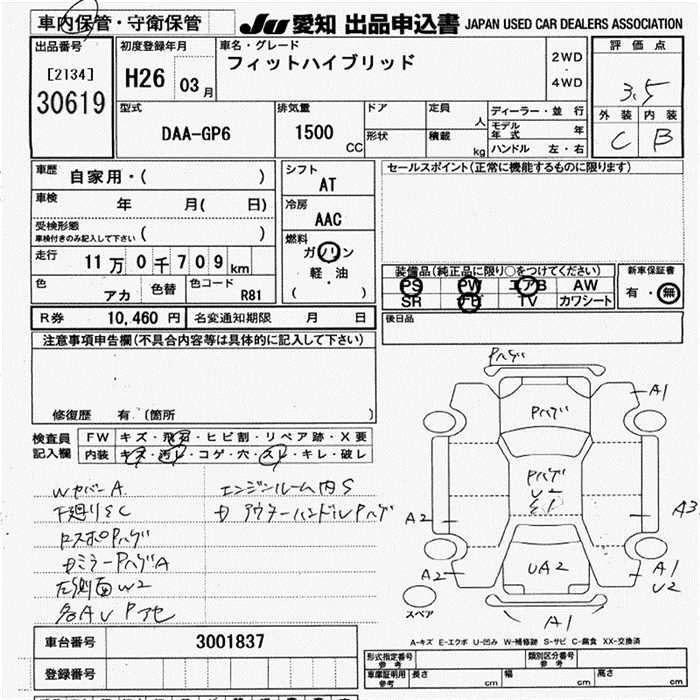 車内保管・守衛保管
JU 愛知 出品申込書 JAPAN USED CAR DEALERS ASSOCIATION
出品番号
[2134]
30619
初度登録年月
H26 03 月
車名・グレード
フィットハイブリッド
2WD
・
4WD
評価点
3.5
外装 内装
C B
型式
DAA-GP6
排気量
1500 CC
ドア
形状
定員 人
積載 kg
ディーラー・並行
モデル年式 年
ハンドル 左・右
車歴 自家用・( )
車検 年 月( 日)
受検形態
車検付きのみ記入して下さい ( )
走行 11万0千709km
色 アカ
色替
色コード R81
シフト
AT
冷房
AAC
燃料
ガソリン
軽・油
( )
セールスポイント(正常に機能するものに限ります)
装備品(純正品に限り○をつけてください)
PS PW エアB AW
SR TV カワシート
新車保証書
有・無
R券 10,460円 名変通知期限 月 日
後日品
注意事項申告欄(不具合内容等は具体的に記入して下さい)
修復歴 有 (箇所 )
検査員記入欄
FW キズ・飛石・ヒビ割・リペア跡・X要
内装 キズ・汚レ・コゲ・穴・スレ・キレ・破レ
WセバーA
下廻りSC
ドスポPハゲ
カミラーPハゲA
左側面W2
各AU P
エンジンルーム内S
カ アウターハンドルPハゲ
Pハゲ
A1
Pハゲ
Pハゲ
U
A2
A3
A2
UA2
A1
U2
スペア
A1
A-キズ E-エクボ U-凹み W-補修跡 S-サビ C-腐食 XX-交換済
車台番号 3001837
登録番号
形式指定番号 参考
類別区分番号 参考
車庫証明用 参考
長さ cm
幅 cm
高さ cm